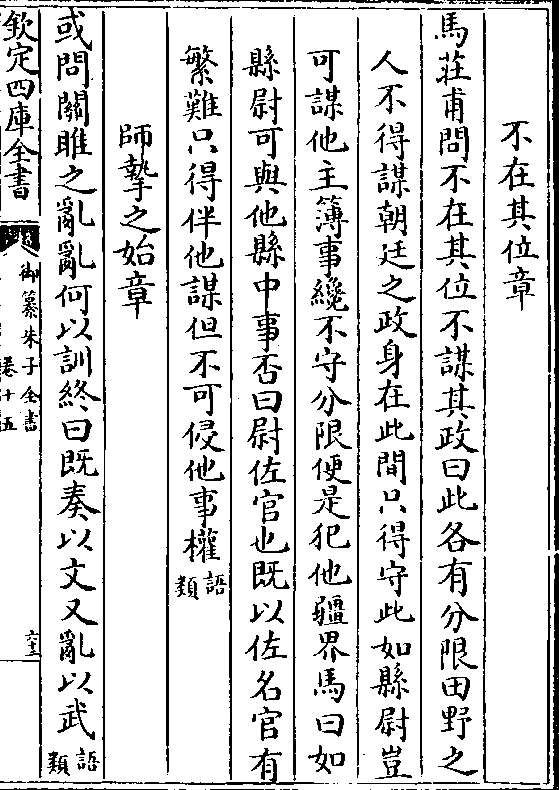 不在其位章
馬莊甫問不在其位不謀其政曰此各有分限田野之
人不得謀朝廷之政身在此間只得守此如縣尉豈
可謀他主簿事纔不守分限便是犯他疆界馬曰如
縣尉可與他縣中事否曰尉佐官也既以佐名官有
繁難只得伴他謀但不可侵他事權語類
師摯之始章
或問關雎之亂亂何以訓終曰既奏以文又亂以武語類
欽定四庫全書
御纂朱子全書
卷十五
六十三